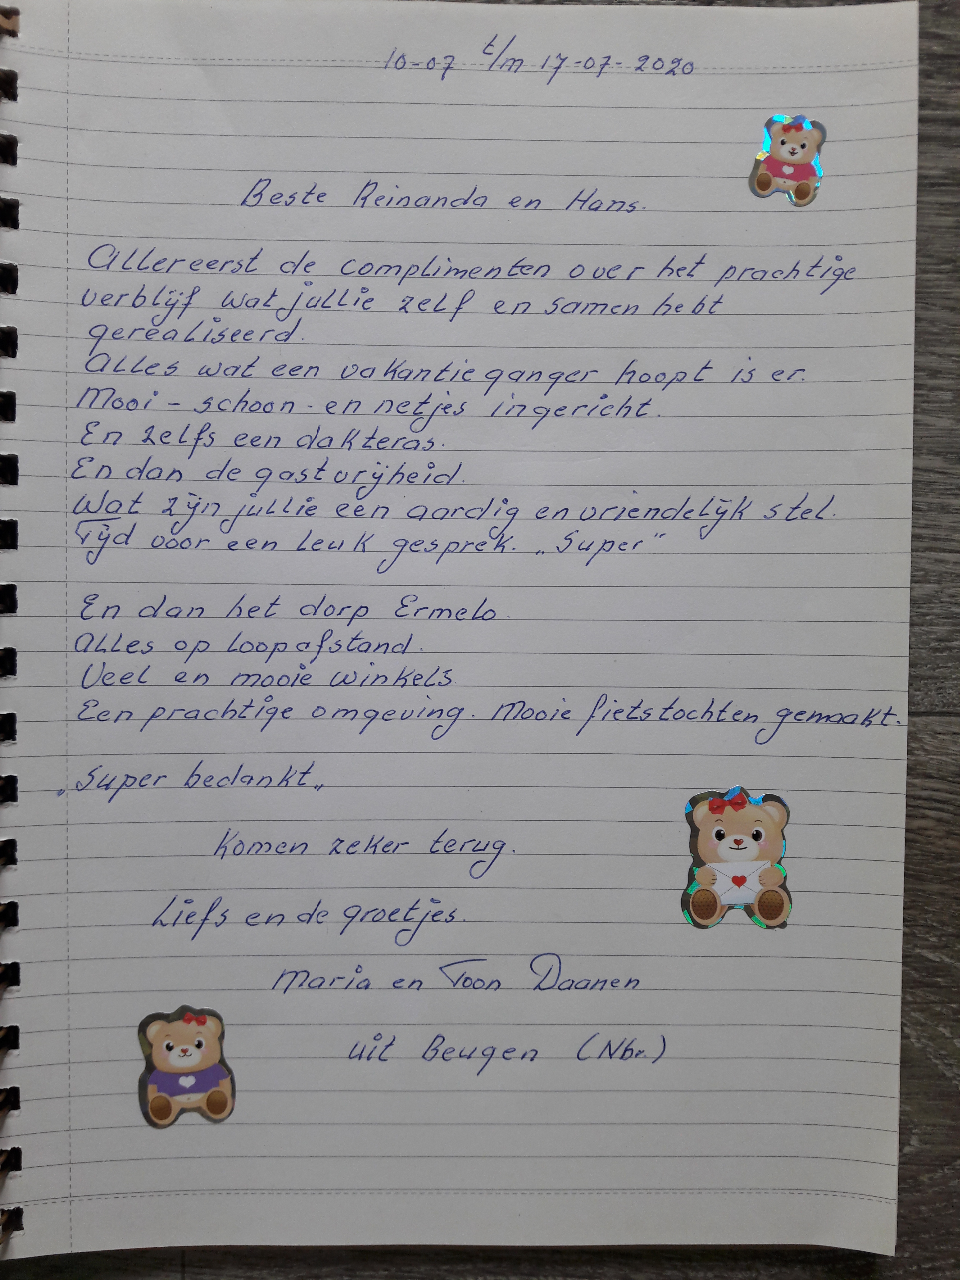 10-07 t/m 17-07-2020
Beste Reinanda en Hans.
Allereerst de complimenten over het prachtige
verblijf wat jullie zelf en samen hebt
gerealiseerd.
Alles wat een vakantieganger hoopt is er.
Mooi - schoon - en netjes ingericht.
En zelfs een dakteras.
En dan de gastvrijheid.
Wat zijn jullie een aardig en vriendelijk stel.
Tijd voor een leuk gesprek. „Super”
En dan het dorp Ermelo.
Alles op loopafstand.
Veel en mooie winkels.
Een prachtige omgeving. Mooie fietstochten gemaakt.
„Super bedankt„
Komen zeker terug.
Liefs en de groetjes.
Maria en Toon Daanen
uit Beugen (Nbr.)